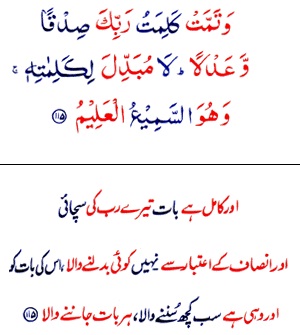 وَتَمَّتْ كَلِمَتُ رَبِّكَ صِدْقًا
وَّعَدْلًا ؕ لَا مُبَدِّلَ لِكَلِمٰتِهٖ ۚ
وَهُوَ السَّمِيْعُ الْعَلِيْمُ ﴿۱۱۵﴾
اور کامل ہے بات تیرے رب کی سچائی
اور انصاف کے اعتبار سے نہیں کوئی بدلنے والا، اس کی بات کو
اور وہی ہے سب کچھ سُننے والا، ہر بات جاننے والا ﴿۱۱۵﴾